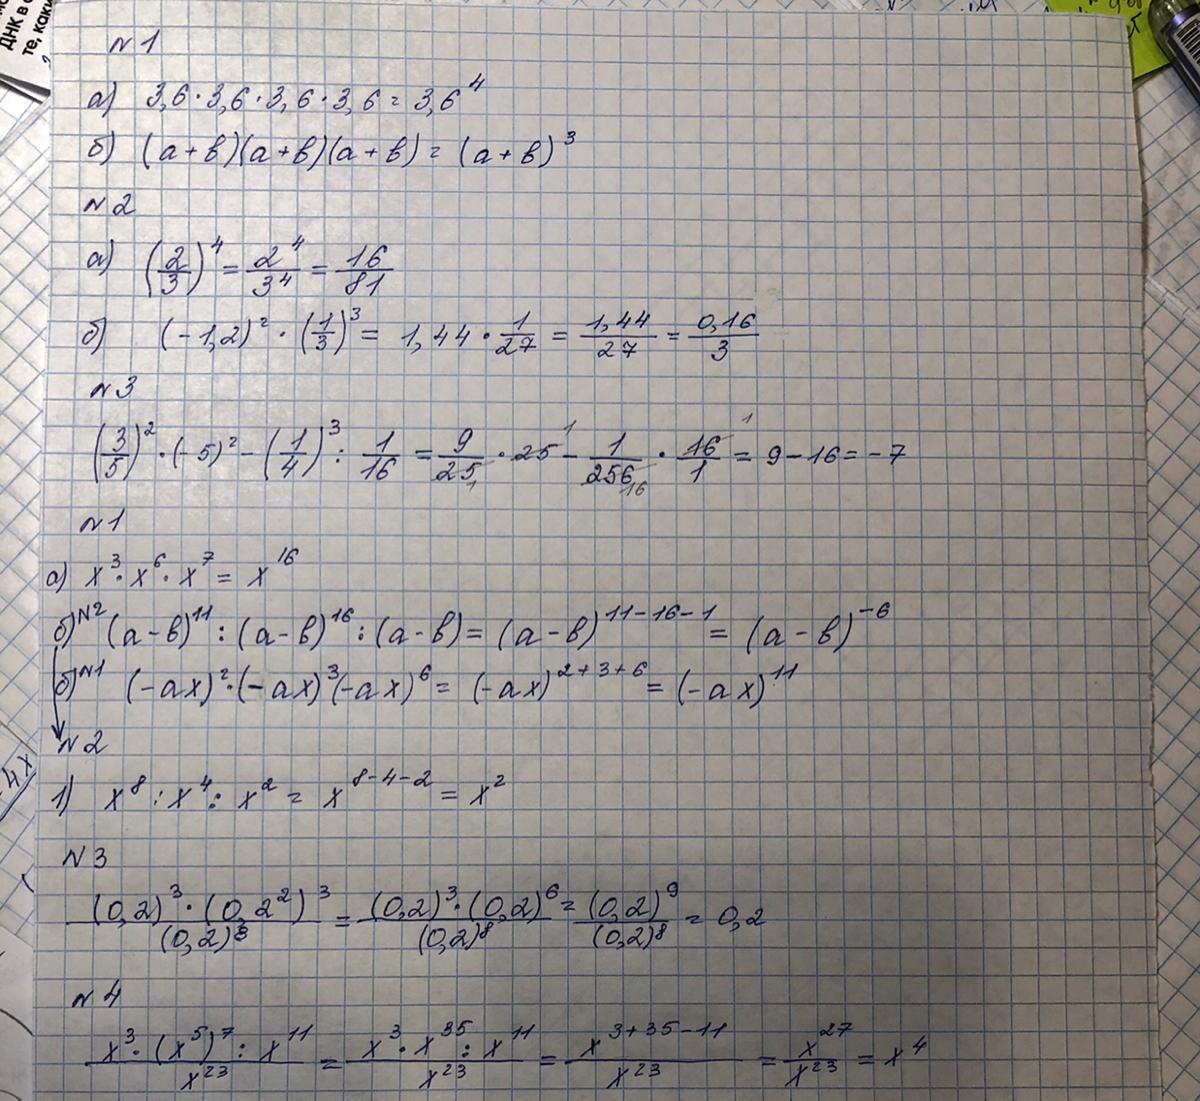 ДНК в
те, каки
N1
а) 3,6·3,6·3,6·3,6 = 3,6^4
б) (а+в)(а+в)(а+в) = (а+в)^3
N2
а) (2/3)^4 = 2^4/3^4 = 16/81
б) (-1,2)^2 · (1/3)^3 = 1,44 · 1/27 = 1,44/27 = 0,16/3
N3
(3/5)^2 · (-5)^2 - (1/4)^3 : 1/16 = 9/25 1 · 25 1 - 1/256 16 · 16 1/1 = 9-16 = -7
N1
а) x^3 · x^6 · x^7 = x^16
б) N2 (а-в)^11 : (а-в)^16 : (а-в) = (а-в)^11-16-1 = (а-в)^-6
б) N1 (-ax)^2 · (-ax)^3 (-ax)^6 = (-ax)^2+3+6 = (-ax)^11
N2
4x
1) x^8 : x^4 : x^2 = x^8-4-2 = x^2
N3
(0,2)^3 · (0,2^2)^3/(0,2)^8 = (0,2)^3 · (0,2)^6/(0,2)^8 = (0,2)^9/(0,2)^8 = 0,2
N4
x^3 · (x^5)^7 : x^11/x^23 = x^3 · x^35 : x^11/x^23 = x^3+35-11/x^23 = x^27/x^23 = x^4